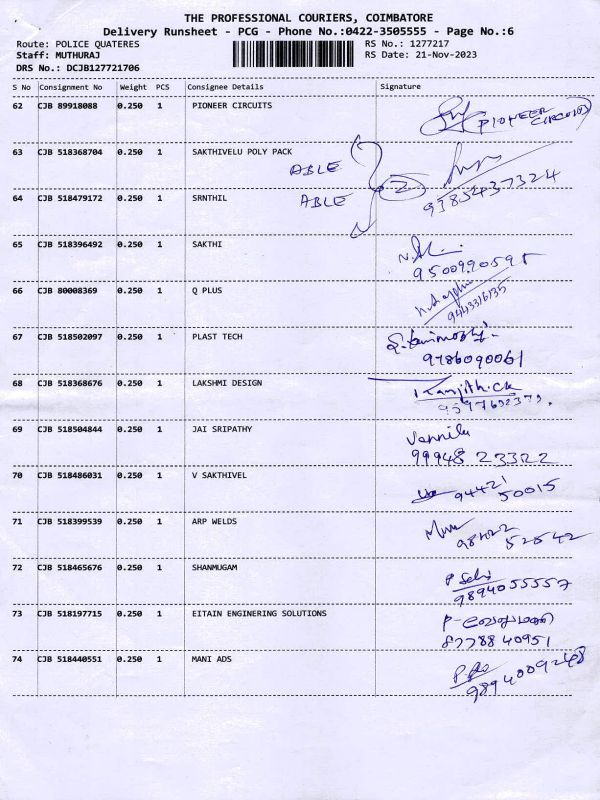 THE PROFESSIONAL COURIERS, COIMBATORE
Delivery Runsheet - PCG - Phone No.:0422-3505555 - Page No.:6
Route: POLICE QUATERES RS No.: 1277217
Staff: MUTHURAJ RS Date: 21-Nov-2023
DRS No.: DCJB127721706
S No Consignment No Weight PCS Consignee Details Signature
62 CJB 89918088 0.250 1 PIONEER CIRCUITS
PIONEER
63 CJB 518368704 0.250 1 SAKTHIVELU POLY PACK
ABLE
2
64 CJB 518479172 0.250 1 SRNTHIL
ABLE
65 CJB 518396492 0.250 1 SAKTHI
9500990595
66 CJB 80008369 0.250 1 Q PLUS
9443316135
67 CJB 518502097 0.250 1 PLAST TECH
9786090061
68 CJB 518368676 0.250 1 LAKSHMI DESIGN
69 CJB 518504844 0.250 1 JAI SRIPATHY
Vennila
99948 23322
70 CJB 518486031 0.250 1 V SAKTHIVEL
94421
50015
71 CJB 518399539 0.250 1 ARP WELDS
52542
72 CJB 518465676 0.250 1 SHANMUGAM
P Selvi
9894055557
73 CJB 518197715 0.250 1 EITAIN ENGINERING SOLUTIONS
8778840951
74 CJB 518440551 0.250 1 MANI ADS
9894009248